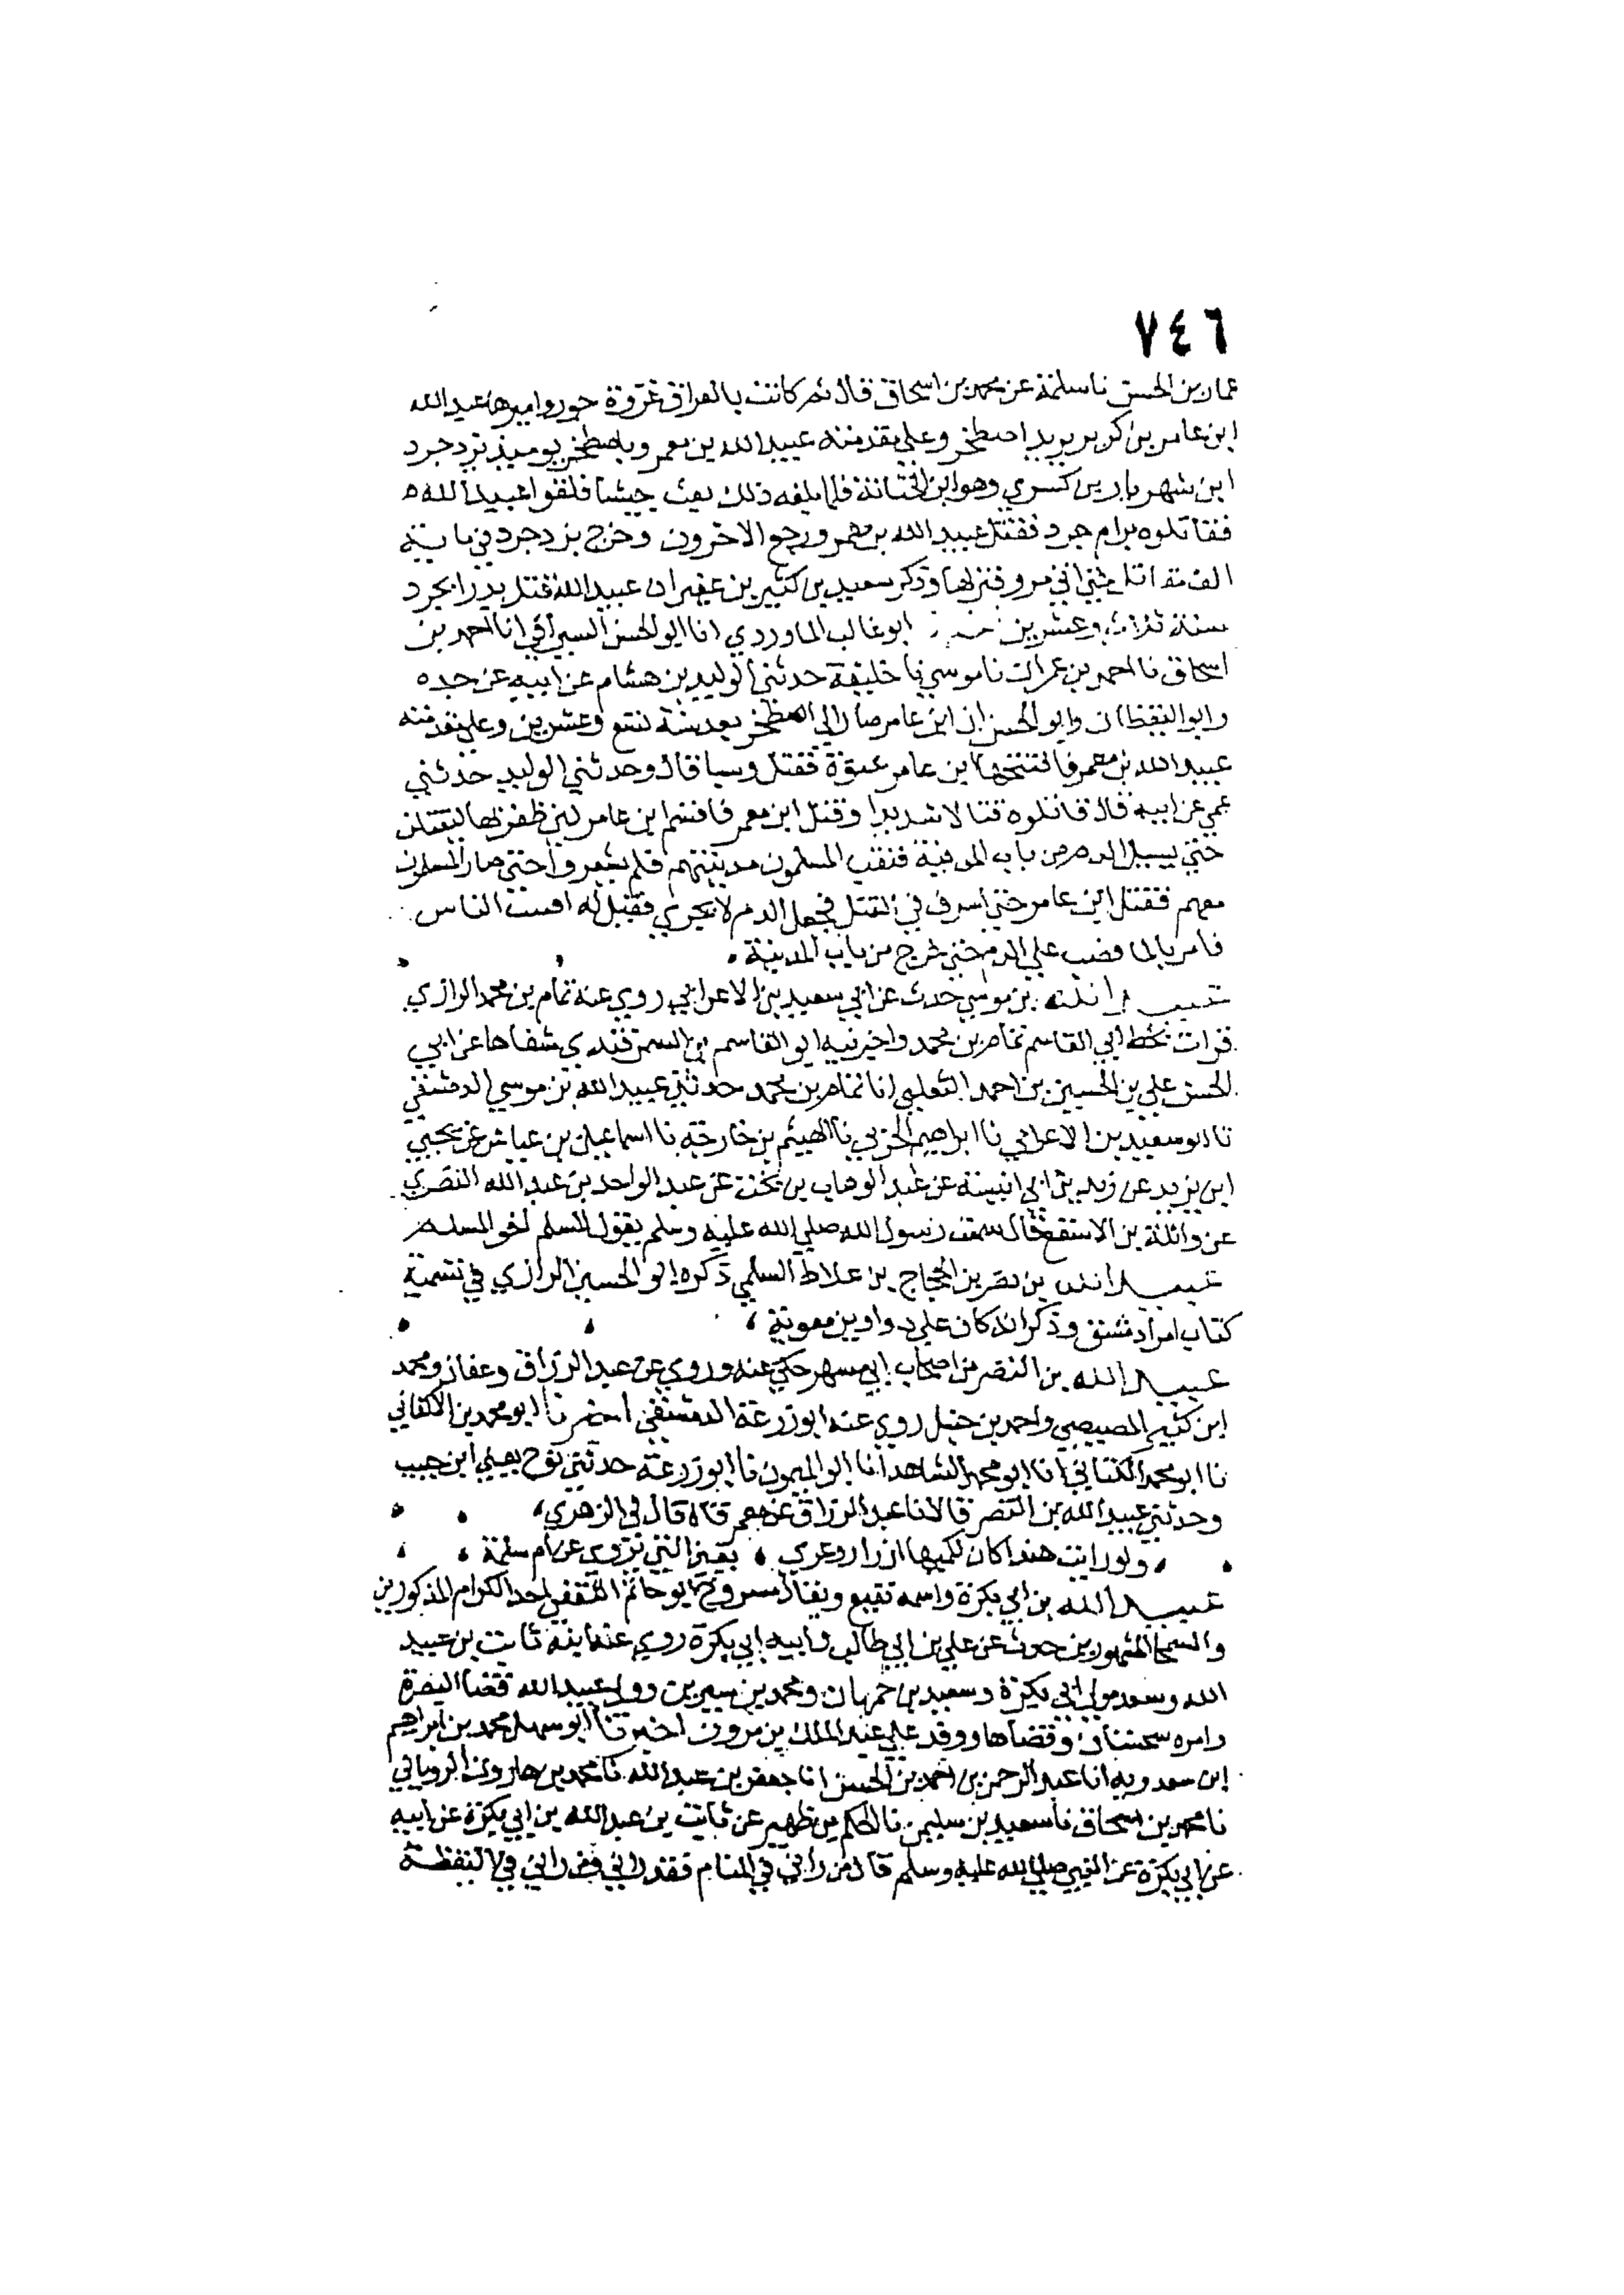 ٧٤٦
عمار بن الحسن نا سلمة عن محمد بن اسحاق قال ثم كانت بالعراق غزوة جور واميرها عبد الله
ابن عامر بن كريز يريد اصطخر وعلى مقدمته عبيد الله بن معمر وباصطخر يوميذ يزدجرد
ابن شهريار بن كسري وهو ابن الختانة فلما بلغه ذلك بعث جيشا فلقوا عبيد الله
فقاتلوه برام جرد فقتل عبيد الله بن معمر ورجع الاخرون وخرج يزدجرد في ماية
الف مقاتل حتي اتي مرو فنزلها وذكر سعيد بن كثير بن عفير ان عبيد الله قتل بدرابجرد
سنة ثلاث وعشرين ابو غالب الماوردي انا ابو الحسن السيرافي انا احمد بن
اسحاق نا احمد بن عمران نا موسي نا خليفة حدثني الوليد بن هشام عن ابيه عن جده
وابو اليقظان وابو الحسن ان ابن عامر صار الي اصطخر بعد سنة تسع وعشرين وعلي مقدمته
عبيد الله بن معمر فافتتحها ابن عامر عنوة فقتل وسبا قال وحدثني الوليد حدثني
عمي عن ابيه قال قاتلوه قتالا شديدا وقتل ابن معمر فاقسم ابن عامر لين ظفر بها ليقتلن
حتي يسيل الدم من باب المدينة فنقب المسلمون مدينتهم فلم يشعروا حتي صار المسلمون
معهم فقتل ابن عامر حتي اسرف في القتل فجعل الدم لا يجري فقيل له افنيت الناس
فامر بالما فصب علي الدم حتي خرج من باب المدينة
عبيد الله بن موسي حدث عن ابي سعيد بن الاعرابي روي عنه تمام بن محمد الرازي
قرات بخط ابي القاسم تمام بن محمد واخبرنيه ابو القاسم بن السمرقندي شفاها عن ابي
الحسن علي بن الحسين بن احمد الثعلبي انا تمام بن محمد حدثني عبيد الله بن موسي الدمشقي
نا ابو سعيد بن الاعرابي نا ابراهيم الحربي نا الهيثم بن خارجة نا اسماعيل بن عياش عن يحيي
ابن يزيد عن زيد بن ابي انيسة عن عبد الوهاب بن بخت عن عبد الواحد بن عبد الله النصري
عن واثلة بن الاسقع قال سمعت رسول الله صلي الله عليه وسلم يقول المسلم اخو المسلم
عبيد الله بن نصر بن الحجاج بن علاط السلمي ذكره ابو الحسين الرازي في تسمية
كتاب امرا دمشق وذكر انه كان علي دواوين معوية
عبيد الله بن النصر من اصحاب ابي مسهر حكي عنه وروي عن عبد الرزاق وعفان ومحمد
ابن كثير المصيصي واحمد بن حنبل روي عنه ابو زرعة الدمشقي اخبرنا ابو محمد بن الاكفاني
نا ابو محمد الكتاني انا ابو محمد الشاهد انا ابو الميمون نا ابو زرعة حدثني نوح يعني ابن حبيب
وحدثني عبيد الله بن النصر قالا نا عبد الرزاق عن معمر قال قال لي الزهري
ولو رايت هندا كان لكميها ازرار وعري يعني التي تروي عن ام سلمة
عبيد الله بن ابي بكرة واسمه نفيع ويقال مسروح ابو حاتم الثقفي احد الكرام المذكورين
والسمحا المشهورين حدث عن علي بن ابي طالب وابيه ابي بكرة روي عنه ابنه ثابت بن عبيد
الله وسعد مولي ابي بكرة وسعيد بن جمهان ومحمد بن سيرين وولي عبيد الله قضا البصرة
وامره سجستان وقضاها ووفد علي عبد الملك بن مرون اخبرتنا ابو سهل محمد بن ابراهيم
ابن سعدويه انا عبد الرحمن بن احمد بن الحسن انا جعفر بن عبد الله نا محمد بن هارون الروياني
نا محمد بن اسحاق نا سعيد بن سليمن نا الحكم بن ظهير عن ثابت بن عبيد الله بن ابي بكرة عن ابيه
عن ابي بكرة عن النبي صلي الله عليه وسلم قال من راني في المنام فقد راني في اليقظة